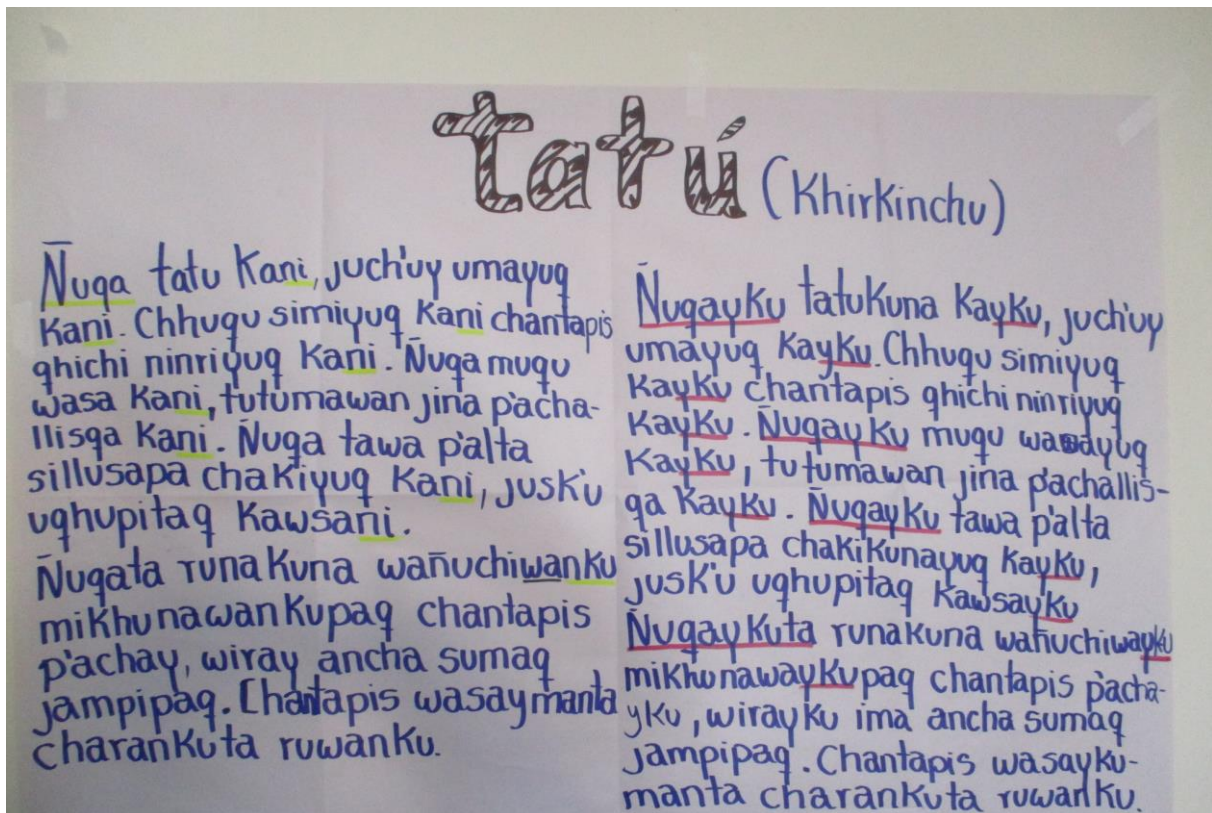 tatú (Khirkinchu)
Ñuqa tatu Kani, juch'uy umayuq
Kani. Chhuqu simiyuq Kani chantapis
qhichi ninriyuq Kani. Ñuqa muqu
wasa Kani, tutumawan jina p'acha-
llisqa Kani. Ñuqa tawa p'alta
sillusapa chakiyuq Kani, jusk'u
uqhupitaq Kawsani.
Ñuqata runakuna wañuchiwanku
mikhunawankupaq chantapis
p'achay, wiray ancha sumaq
jampipaq. Chantapis wasaymanta
charankuta ruwanku.
Ñuqayku tatukuna Kayku, juch'uy
umayuq Kayku. Chhuqu simiyuq
Kayku chantapis qhichi ninriyuq
Kayku. Ñuqayku muqu wasayuq
Kayku, tutumawan jina p'achallis-
qa Kayku. Ñuqayku tawa p'alta
sillusapa chakikunayuq Kayku,
jusk'u uqhupitaq Kawsayku
Ñuqaykuta runakuna wañuchiwayku
mikhunawaykupaq chantapis p'acha-
yku, wirayku ima ancha sumaq
jampipaq. Chantapis wasayku-
manta charankuta ruwanku.